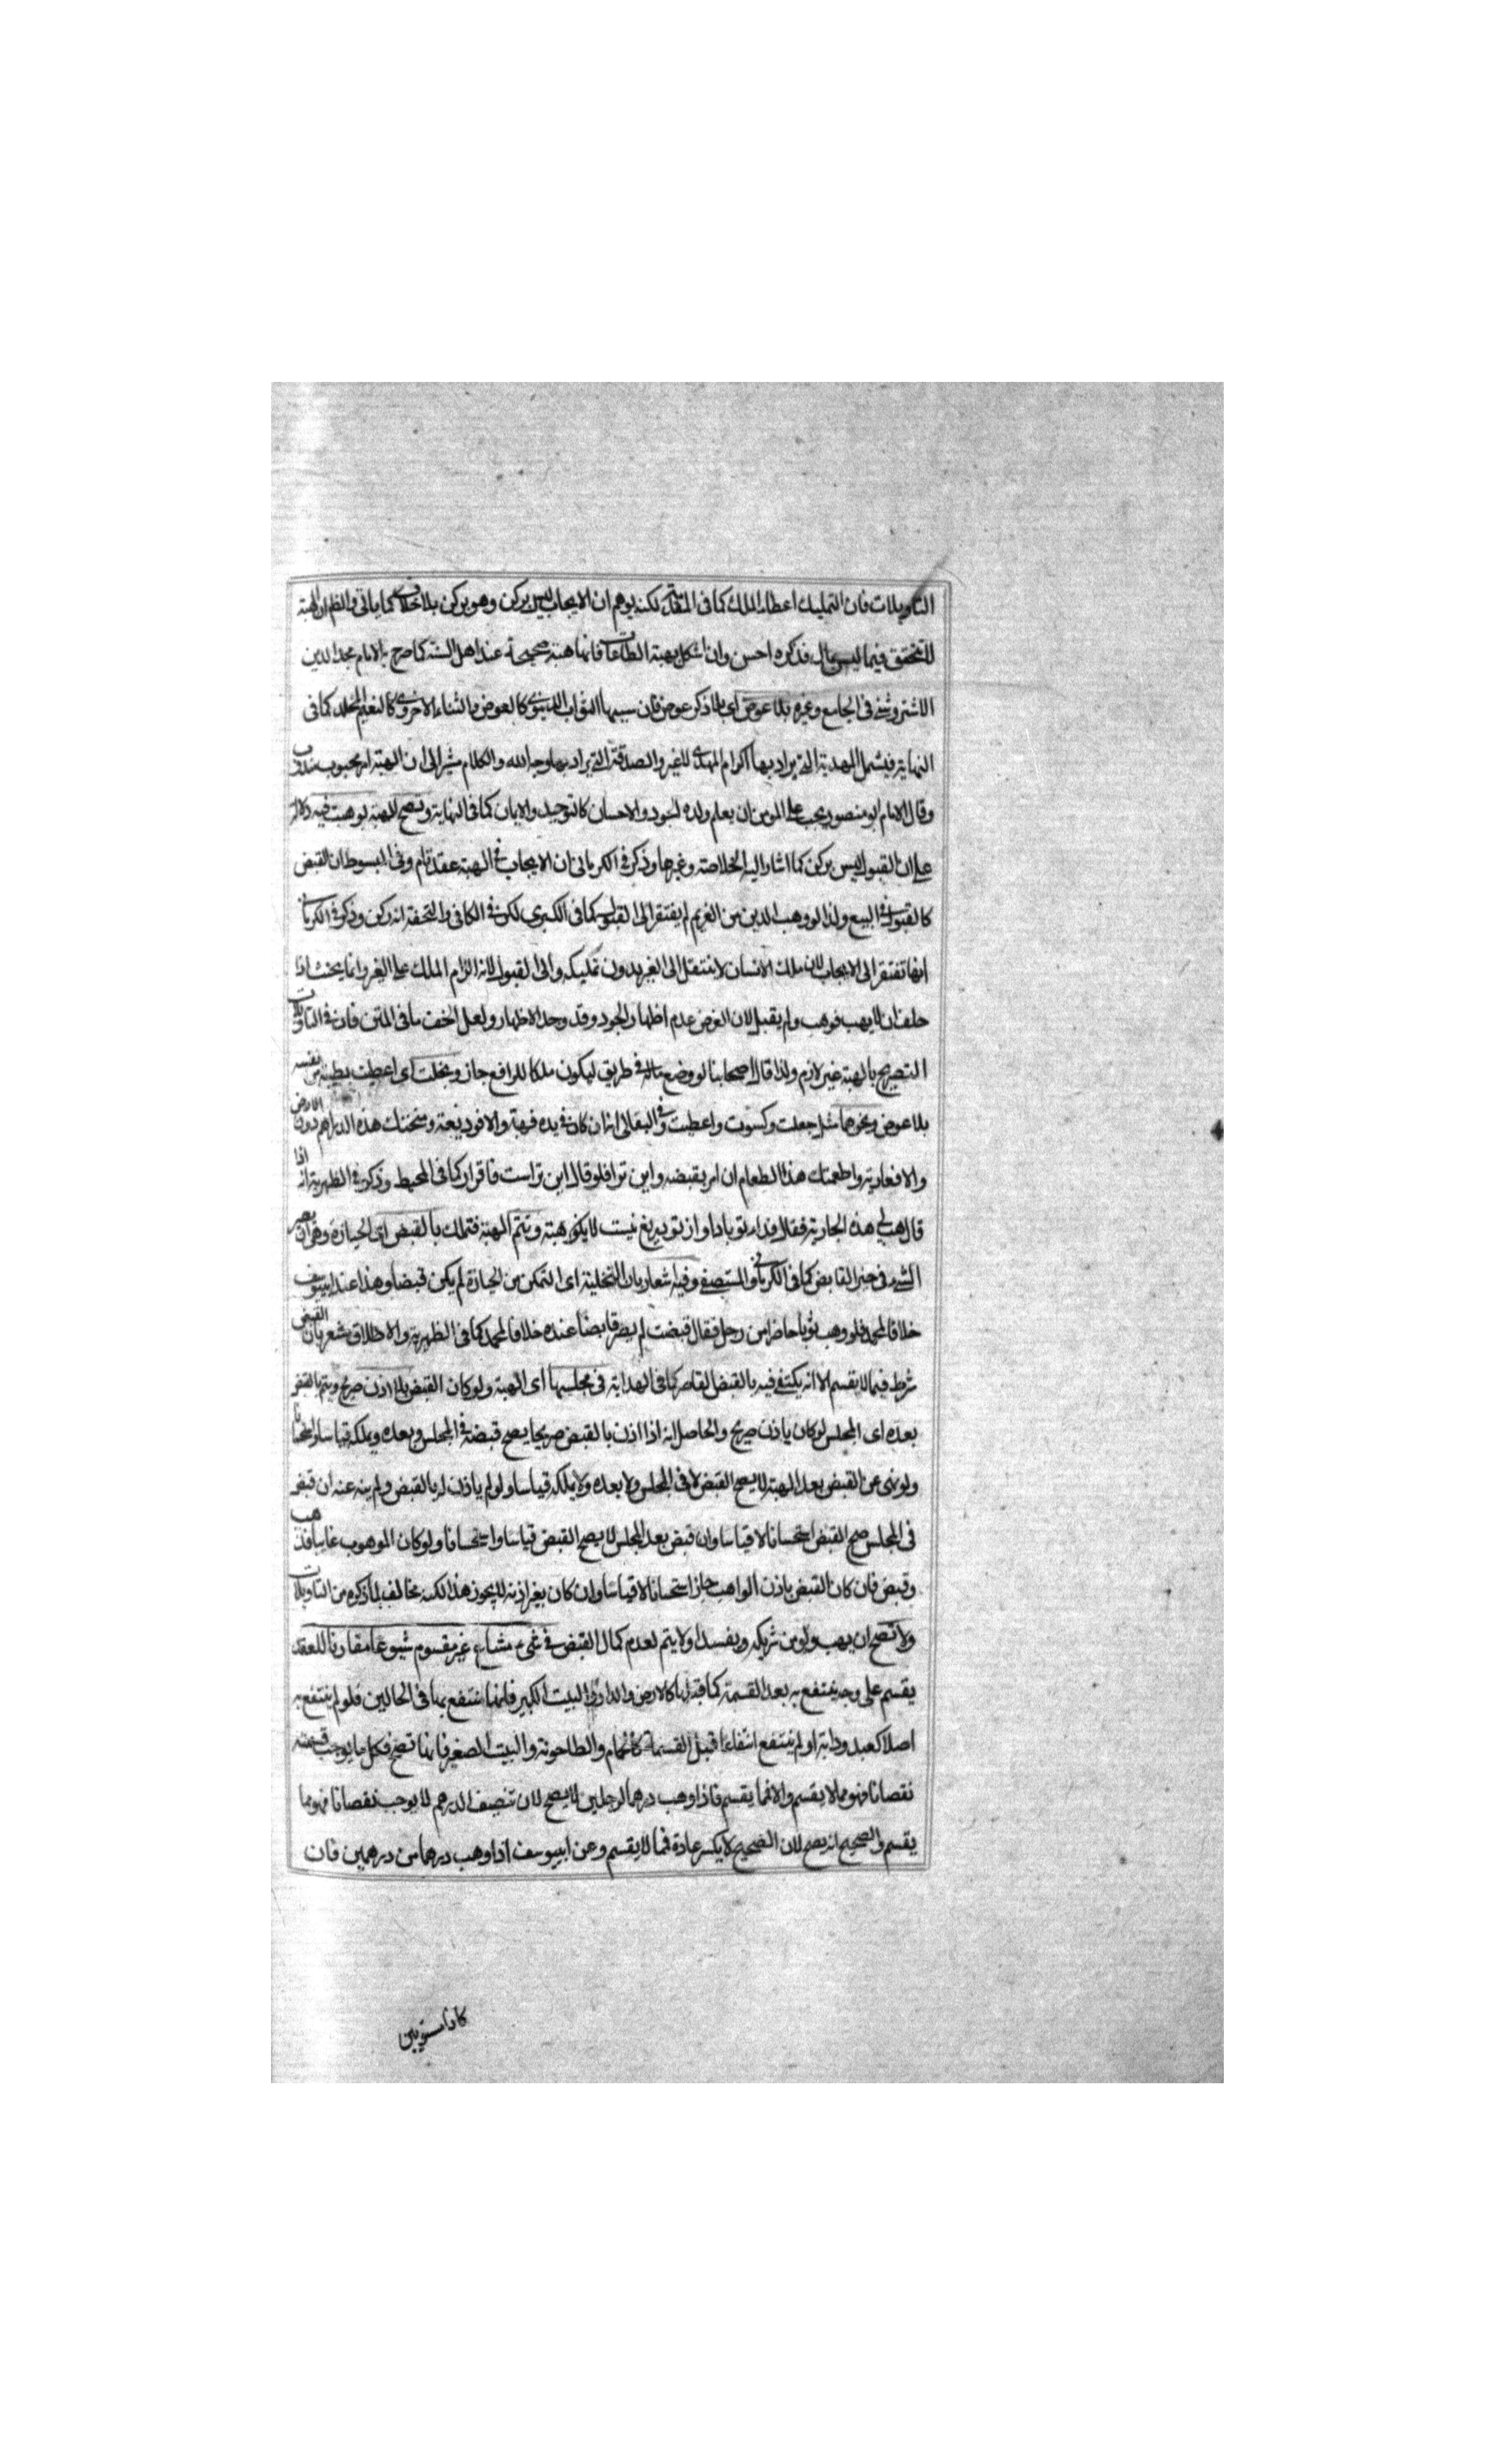 التاويلات فان التمليك اعطاء الملك كما فى لكنه يوهم ان الايجاب ليس بركن وهو ركن بلا خلاف كما ياتى والظ ان الهبة
للتحقق فيما ليس بمال فذكره احسن وان اشكل بهبة الطاعات فانها هبة صحيحة عند اهل السنة كما صرح به الامام مجد الدين
الاشتروشنى فى الجامع وغيره بلا عوض اى بلا ذكر عوض فان سببها الثواب الدنيوى كالعوض والثناء والاخروى كالنعيم المخلد كما فى
النهاية فيشمل الهدية التى يراد بها اكرام المهدى للغير والصدقة التى يراد بها وجه الله والكلام مشير الى ان الهبة امر محبوب مندوب
وقال الامام ابو منصور يجب على المومن ان يعلم ولده الجود والاحسان كالتوحيد والايمان كما فى النهاية وتصح الهبة بوهبت فيه دلالة
على ان القبول ليس بركن كما اشار اليه الخلاصة وغيرها وذكر فى الكرمانى ان الايجاب فى الهبة عقد تام وفى المبسوط ان القبض
كالقبول فى البيع ولذا لو وهب الدين من الغريم لم يفتقر الى القبول كما فى الكبرى لكن فى الكافى والتحفة انه ركن وذكر فى الكرمانى
انها تفتقر الى الايجاب لان ملك الانسان لا ينتقل الى الغير بدون تمليكه والى القبول لانه الزام الملك على الغير وانما يحنث اذا
حلف ان لا يهب فوهب ولم يقبل لان الغرض عدم اظهار الجود وقد وجد الاظهار ولعل الحق ما فى المتن فان فى التاويلات
التصريح بالهبة غير لازم ولذا قال اصحابنا لو وضع ماله فى طريق ليكون ملكا للرافع جاز ونحلت اى اعطيت بطيبة من نفسه
بلا عوض ونحوها مثل جعلت وكسوت واعطيت وفى البقالى انه ان كان فى يده فهبة والا فوديعة ومنحتك هذه الدراهم دون الارض
والا فعارية واطعمتك هذا الطعام ان امر بقبضه واين ترا فلو قال اين تراست فاقرار كما فى المحيط وذكر فى الظهيرية انه اذا
قال هب لى هذه الجارية فقال فداء تو باد او از تو دريغ نيست لا يكون هبة وتتم الهبة فتملك بالقبض اى الحيازة وهو ان يصير
الشىء فى حيز القابض كما فى الكرمانى والمستصفى وفيه اشعار بان التخلية اى التمكن من الحيازة لم يكن قبضا وهذا عند ابى يوسف
خلافا لمحمد فلو وهب ثوبا حاضرا من رجل فقال قبضت لم يصر قابضا عنده خلافا لمحمد كما فى الظهيرية والاطلاق يشعر بان القبض
شرط فيما لا يقسم الا انه يكتفى فيه بالقبض القاصر كما فى الهداية فى مجلسها اى الهبة ولو كان القبض بلا اذن صريح ويتم بالقبض
بعده اى المجلس لو كان باذن صريح والحاصل انه اذا اذن بالقبض صريحا يصح قبضه فى المجلس وبعده ويملكه قياسا واستحسانا
ولو نهى عن القبض بعد الهبة لا يصح القبض لا فى المجلس ولا بعده ولا يملكه قياسا ولو لم ياذن له بالقبض ولم ينه عنه ان قبض
فى المجلس صح القبض استحسانا لا قياسا وان قبض بعد المجلس لا يصح القبض قياسا واستحسانا ولو كان الموهوب غايبا فذهب
وقبض فان كان القبض باذن الواهب جاز استحسانا لا قياسا وان كان بغير اذنه لا يجوز هذا لكنه مخالف لما ذكره من التاويلات
ولا تصح ان يهب ولو من شريكه ويفسد او لا يتم لعدم كمال القبض فى شىء مشاع غير مقسوم شيوعا مقارنا للعقد
يقسم على وجه ينتفع به بعد القسمة كما قبلها كالارض والدار والبيت الكبير فانها ينتفع بها فى الحالين فلو لم ينتفع به
اصلا كعبد ودابة او لم ينتفع انتفاعا قبل القسمة كالحمام والطاحونة والبيت الصغير فانها تصح فكل ما يوجب قسمته
نقصانا فهو مما لا يقسم والا فما يقسم فاذا وهب درهما لرجلين لا يصح لان تنصيف الدرهم لا يوجب نقصانا فهو مما
يقسم والصحيح انه يصح لان الصحيح لا يكسر عادة فما لا يقسم وعن ابى يوسف اذا وهب درهما من درهمين فان
كانا مستويين